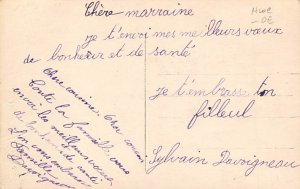 Chère marraine
je t'envoi mes meilleurs vœux
de bonheur et de santé
je t'embrass ton
filleul
Sylvain Davoigneau
Chère cousine. Cher cousin
Toute la famille vous
envoi les meilleurs vœux
de bonheur et de santé